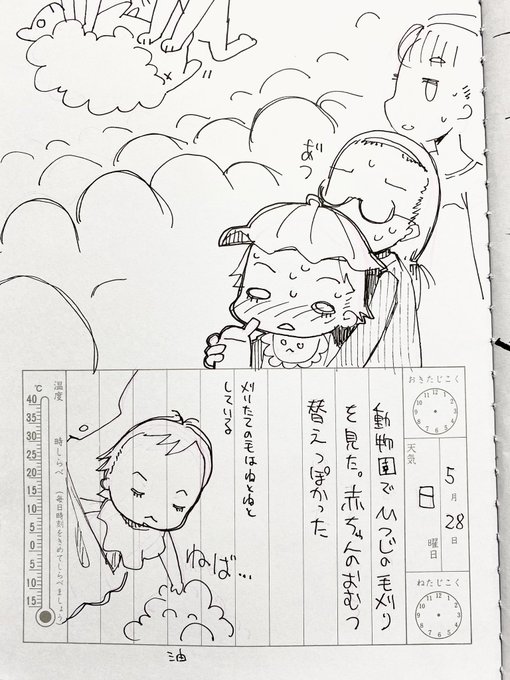 あつ
おきたじこく
5月28日
天気
日曜日
ねたじこく
動物園でひつじの毛刈り
を見た。赤ちゃんのおむつ
替えっぽかった
刈りたての毛はねとねと
している
ねば…
油
温度
時しらべ(毎日時刻をきめてしらべましょう)
℃
40
35
30
25
20
15
10
5
0
5
10
15